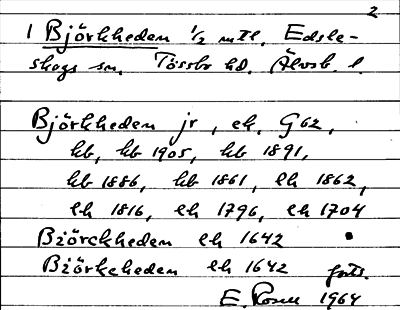 2
1 Björkheden 1/2 mtl, Edsle-
skogs sn. Tössbo hd. Älvsb. l.
Björkheden jr, ek. G62,
hb, hb 1905, hb 1891,
hb 1886, hb 1861, eh 1862,
eh 1816, eh 1796, eh 1704
Biörckheden eh 1642
Biörkeheden eh 1642 forts.
E. Rosell 1964